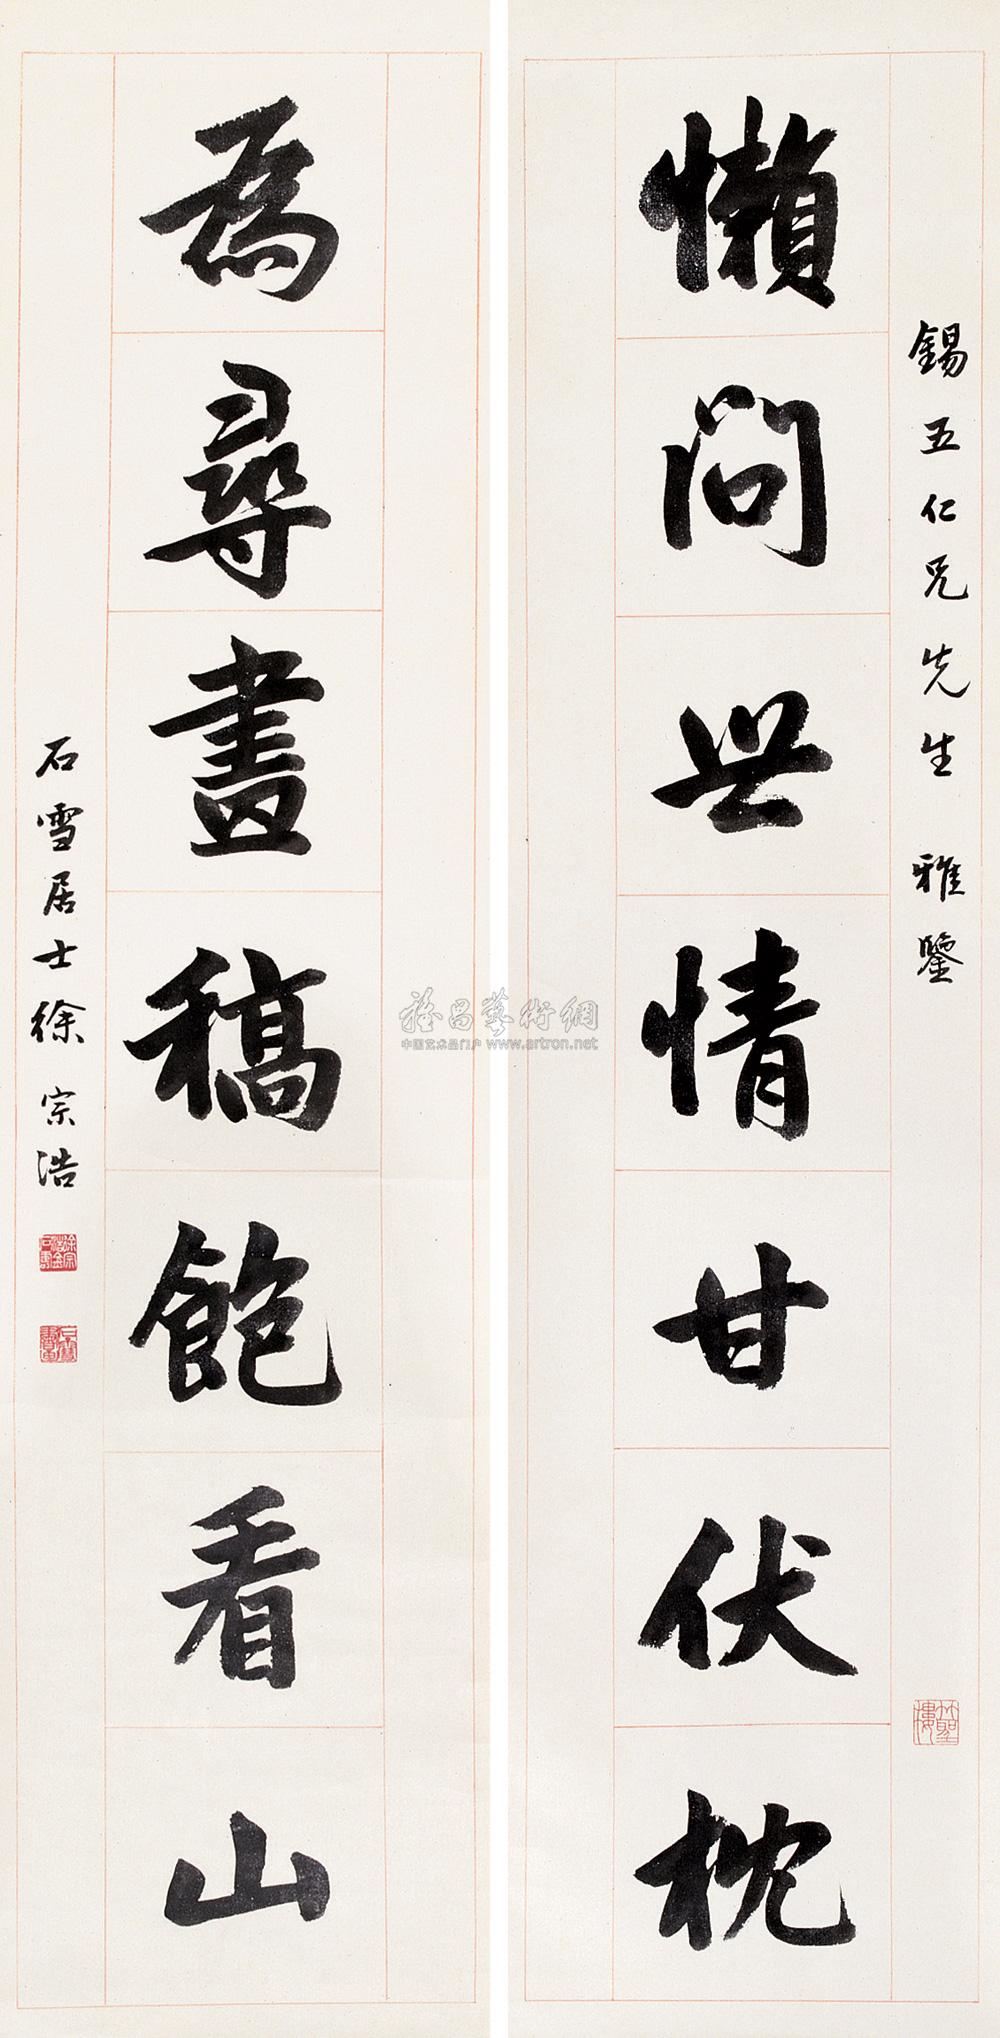 錫五仁兄先生 雅鑒
懶問世情甘伏枕
為尋畫稿飽看山
石雪居士徐宗浩
雅昌藝術網
中国艺术品门户 www.artron.net